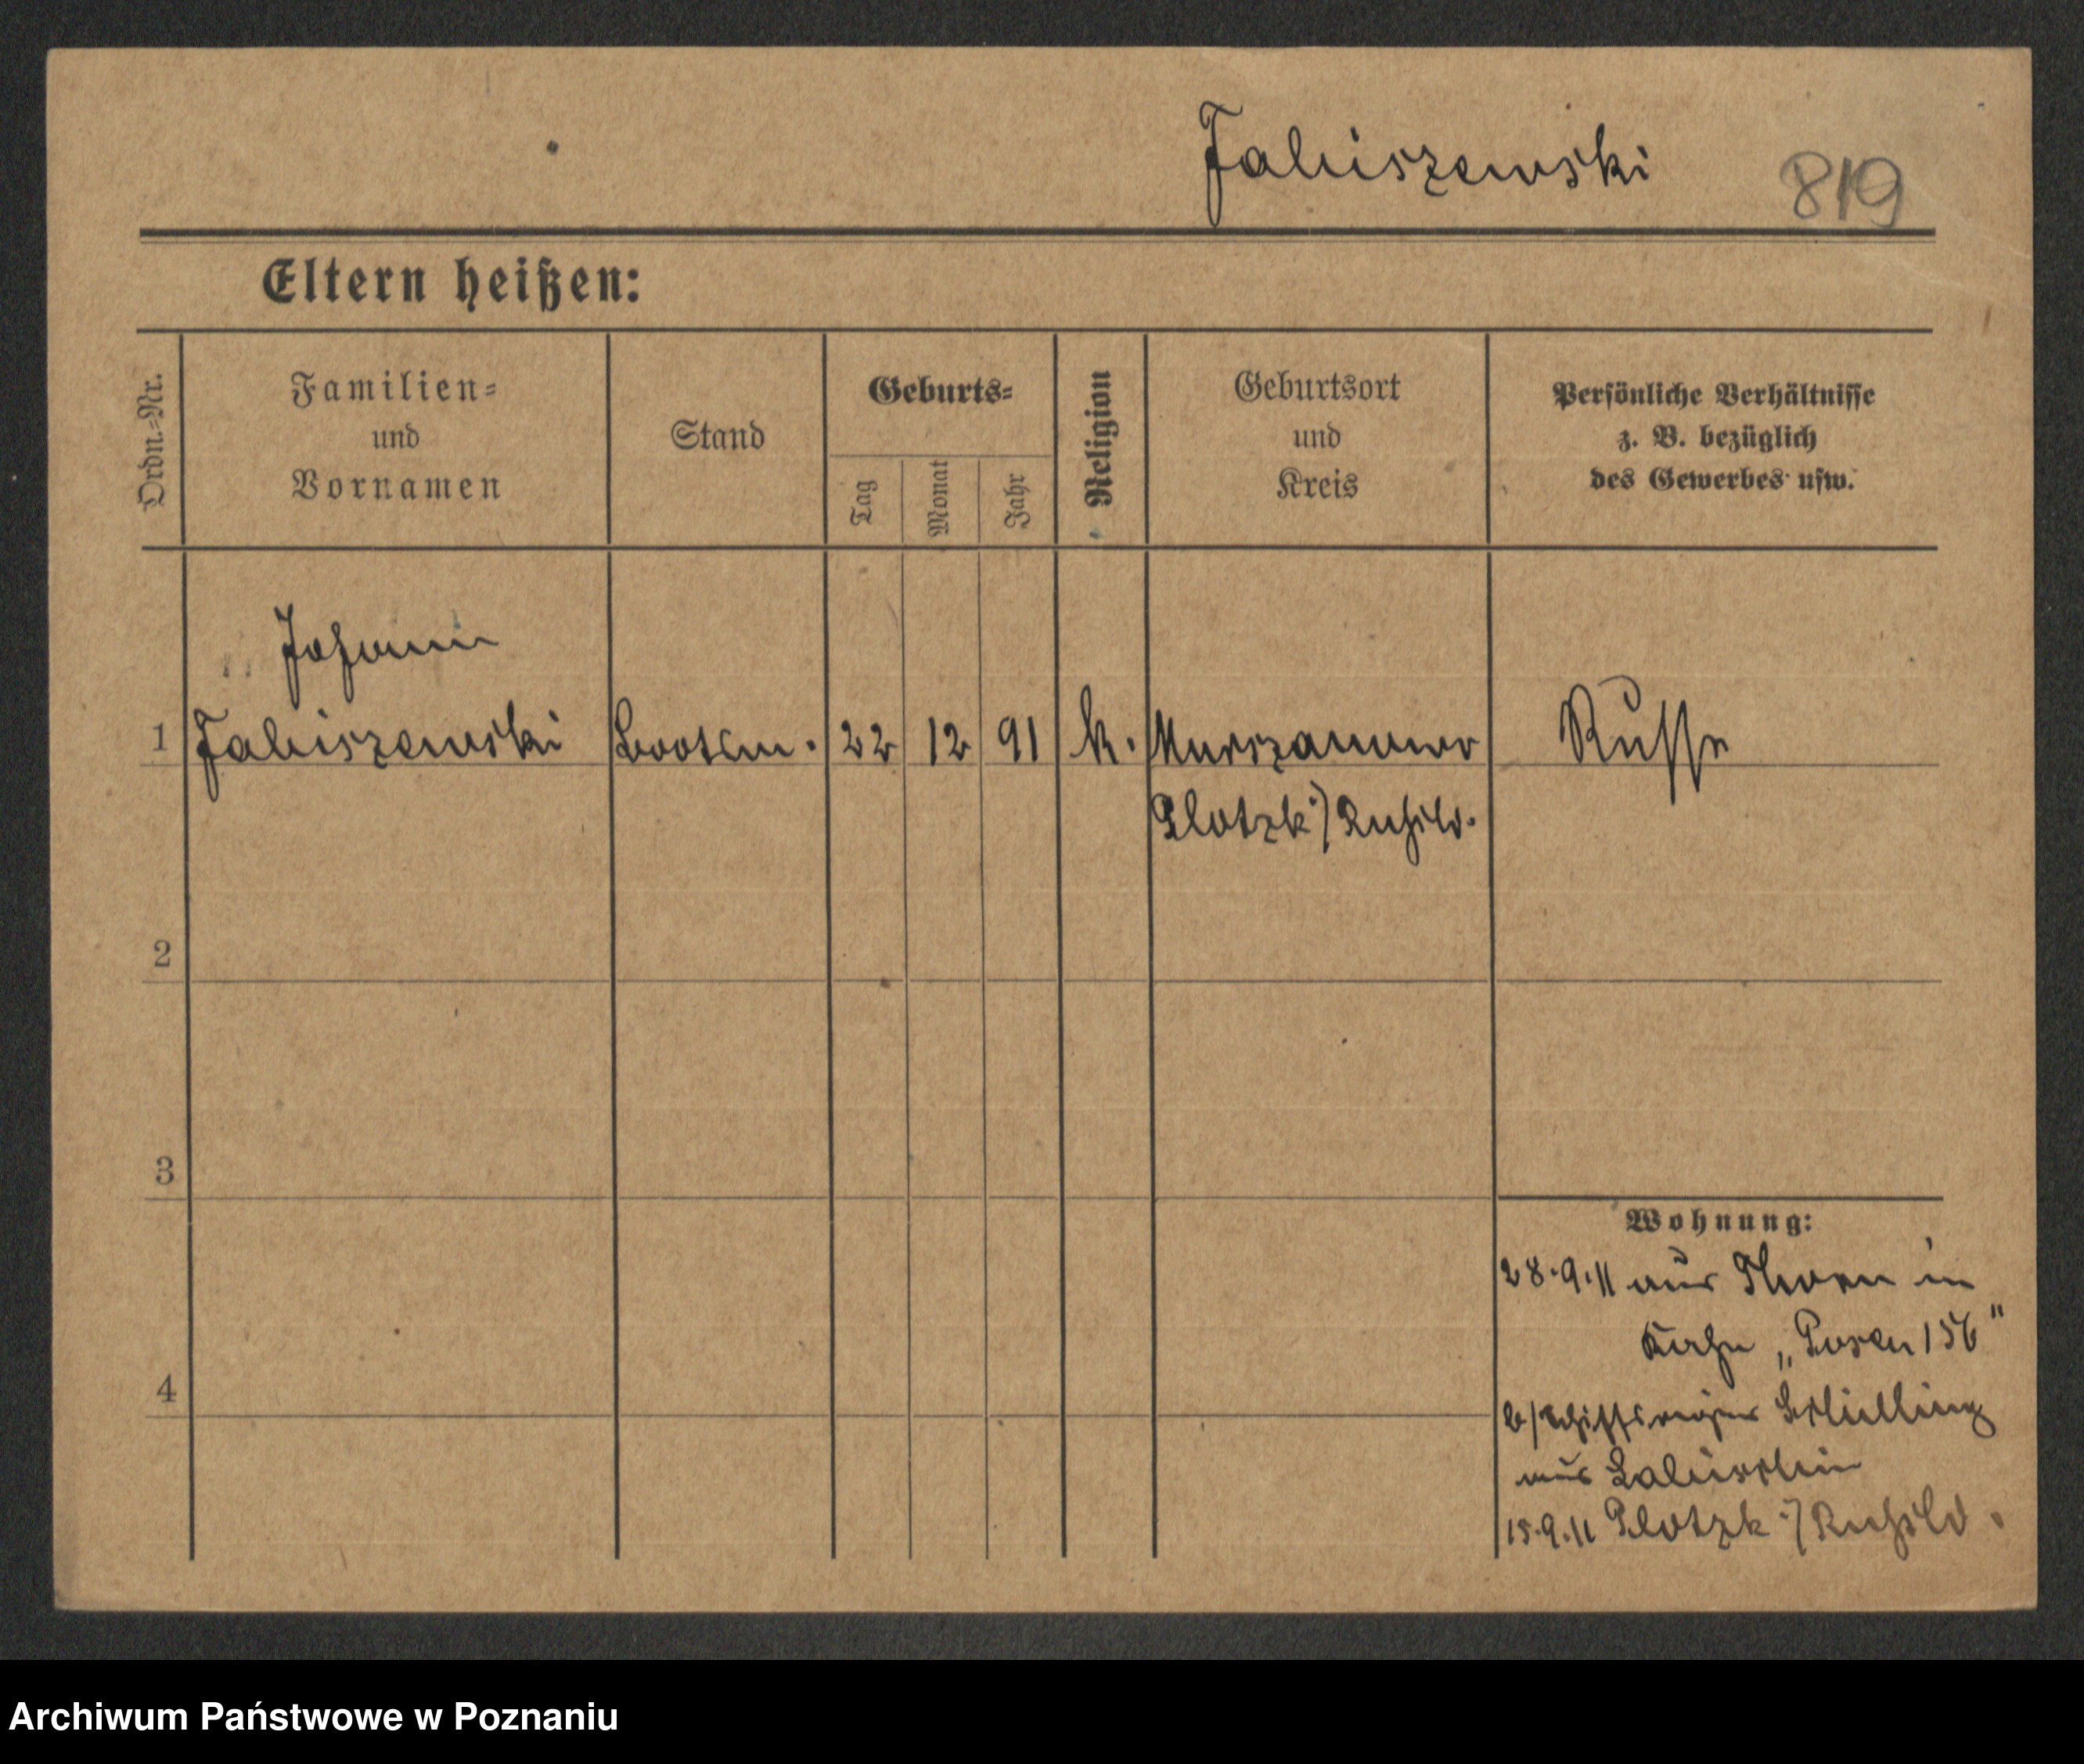 Jabiszewski 819
Eltern heißen:
Ordn.-Nr.
Familien=
und
Vornamen
Stand
Geburts=
Tag
Monat
Jahr
Religion
Geburtsort
und
Kreis
Persönliche Verhältnisse
z. B. bezüglich
des Gewerbes usw.
Johann
1 Jabiszewski Bootsm. 22 12 91 k. Russe
Plotzk :/ Rußld.
2
3
4
Wohnung:
28.9.11 aus Thorn in
Kahn „Posen 156"
b/ Schiffseigner
aus
15.9.11 Plotzk :/ Rußld.
Archiwum Państwowe w Poznaniu